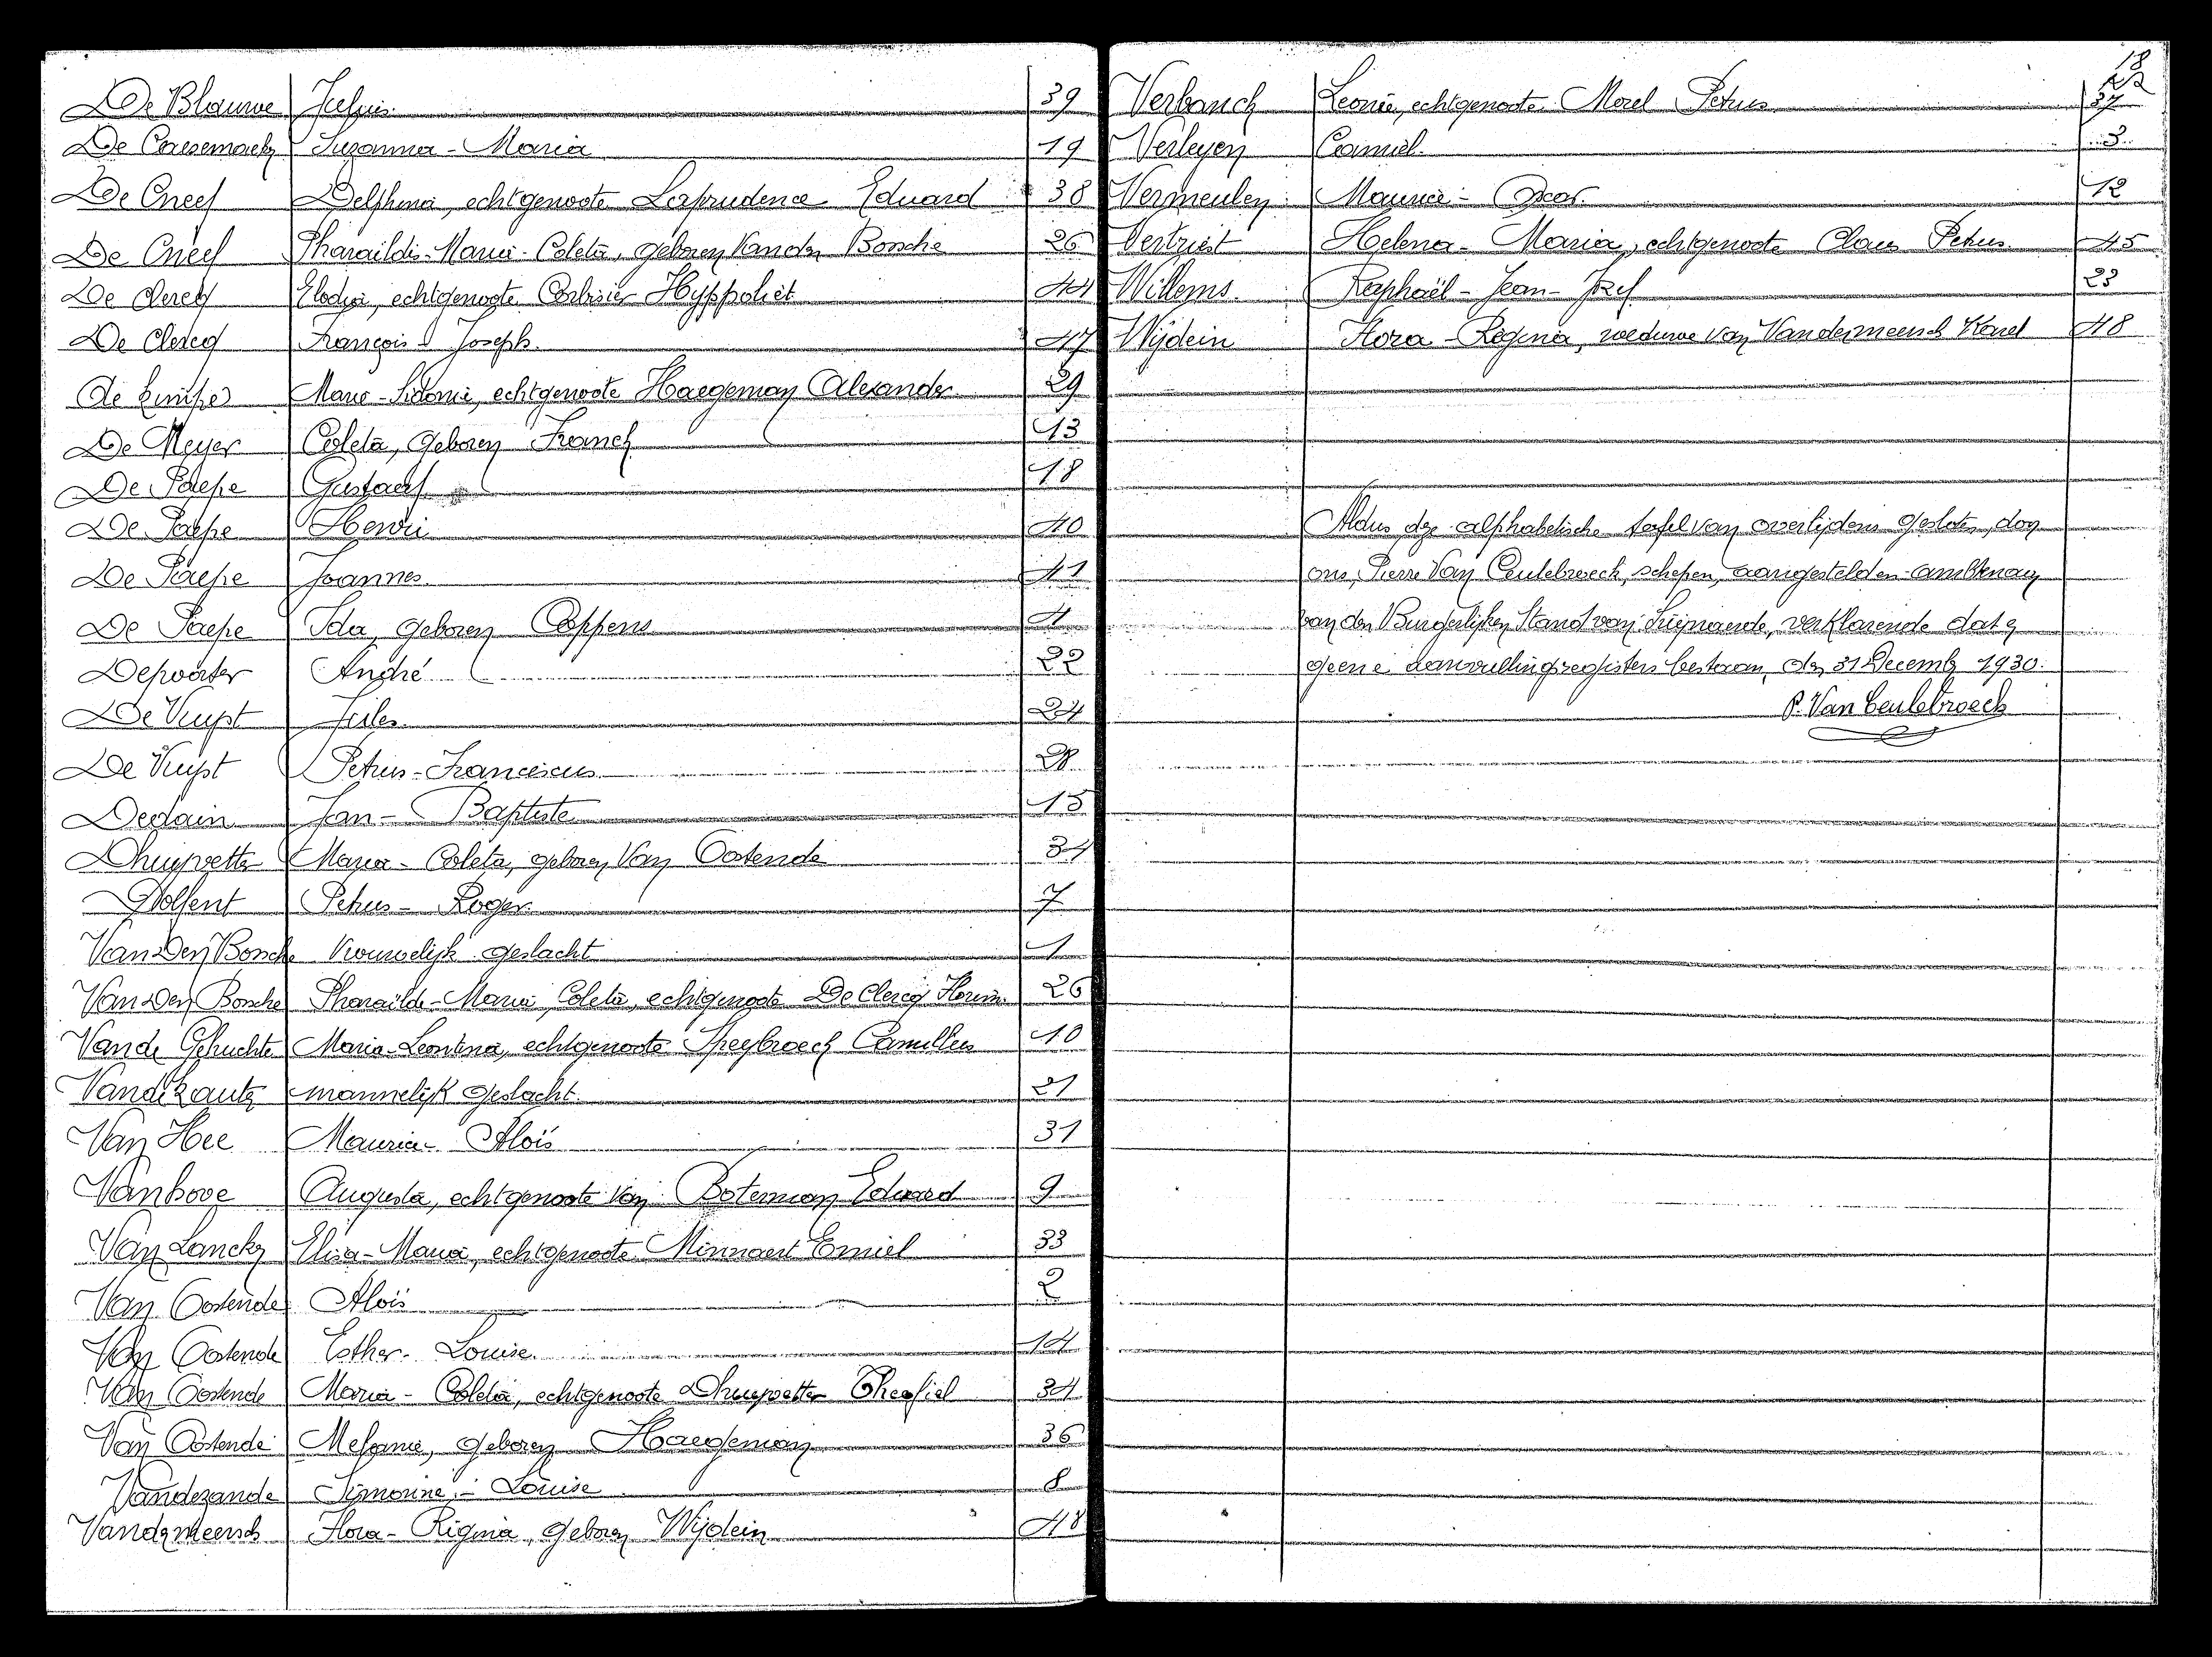 De Blauwe Julius. 39
De Caesemaeker Suzanna - Maria 19
De Cneef Delphina, echtgenoote Laprudence Eduard 38
De Cneef Pharaildis-Maria-Coleta, geboren Vanden Bossche 26
De Clercq Elodia, echtgenoote Corbisier Hyppoliet 44
De Clercq François Joseph. 47
de Kimpe Marie-Sidonie, echtgenoote Haegeman Alexander. 29
De Meyer Coleta, geboren Franck 13
De Paepe Gustaaf 18
De Paepe Henri 40
De Paepe Joannes. 41
De Paepe Ida, geboren Coppens 4
Depoorter André 22
De Vuyst Jules. 24
De Vuyst Petrus-Franciscus 28
Dedain Jan - Baptiste 15
Dhuyvetter Maria - Coleta, geboren Van Oostende 34
Dolfent Petrus - Roger. 7
Van Den Bossche Vrouwelijk geslacht 1
Van Den Bossche Pharaïlde-Maria Coleta, echtgenoote De Clercq 26
Vande Gehuchte Maria-Leontina, echtgenoote Speybroeck Camillus 10
mannelijk geslacht. 21
Van Hee Maurice - Aloïs 31
Vanhove Augusta, echtgenoote van Boterman Eduard 9
Van Lancker Elisa-Maria, echtgenoote Minnaert Emiel 33
Van Oostende Aloïs 2
Van Oostende Esther - Louise. 14
Van Oostende Maria - Coleta, echtgenoote Dhuyvetter Theofiel 34
Van Oostende Melanie, geboren Haegeman 36
Vandezande Simonine - Louise 8
Vandermeersch Flora - Regina, geboren Wijdein 48
18
Verbanck Leonie, echtgenoote Morel Petrus 37
Verleyen Camiel. 3
Vermeulen Maurice - Oscar. 12
Vertriest Helena - Maria, echtgenoote Claus Petrus. 45
Willems. Raphaël - Jean - Jozef 23
Wijdein Flora - Regina, weduwe van Vandermeersch Karel 48
Aldus deze alphabetische tafel van overlijdens gesloten, door
ons, Pierre Van Ceulebroeck, schepen, aangestelden ambtenaar
van den Burgerlijken Stand van verklarende dat er
geene aanvullingsregisters bestaan, den 31 December 1930.
P. Van Ceulebroeck